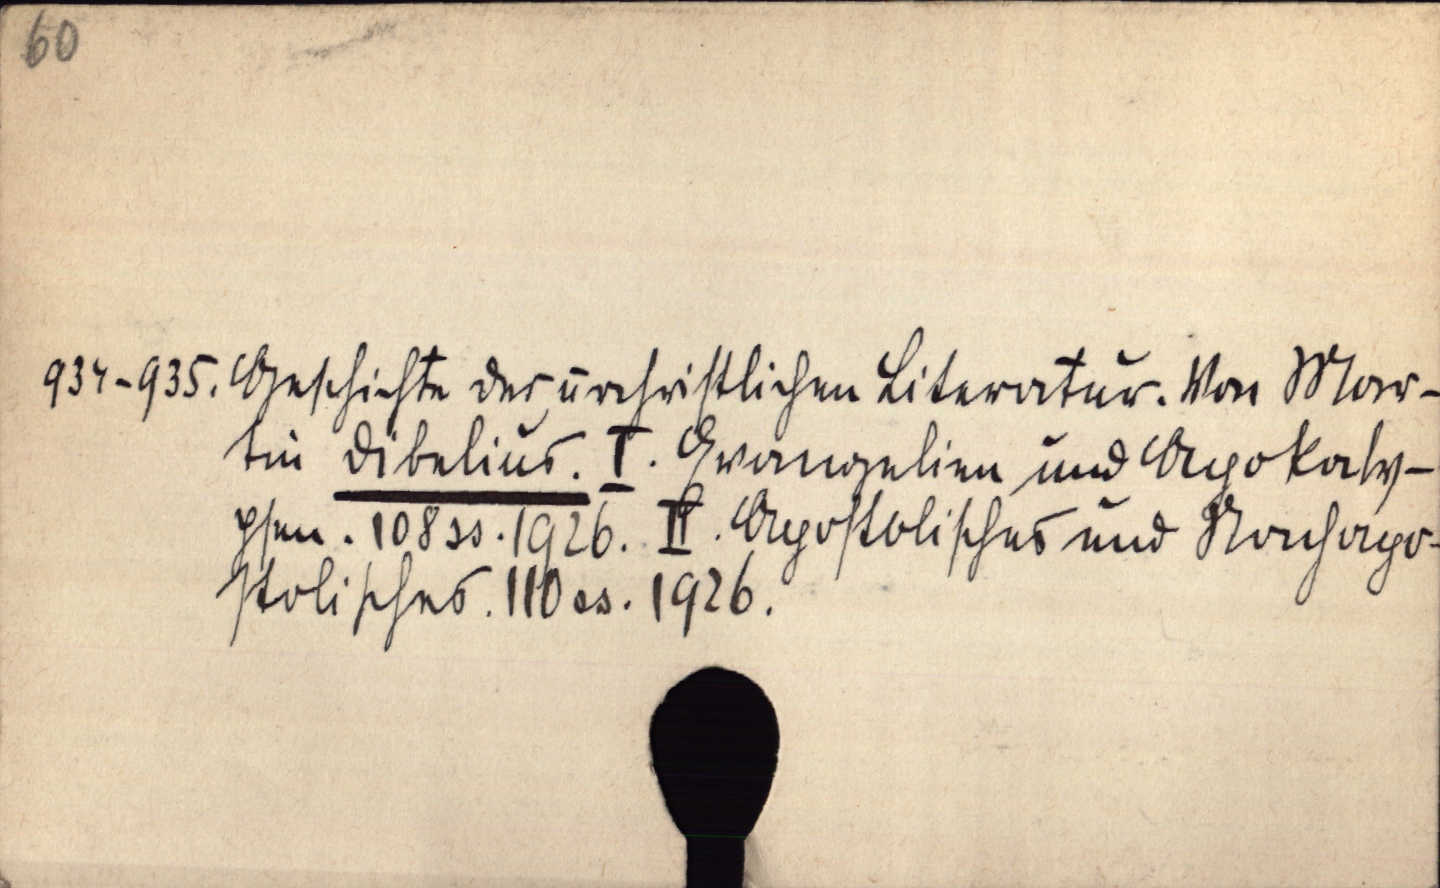 60
934-935. Geschichte der urchristlichen Literatur. Von Mar-
tin Dibelius. I. Evangelien und Apokaly-
psen. 108 ss. 1926. II. Apostolisches und Nachapo-
stolisches. 110 ss. 1926.